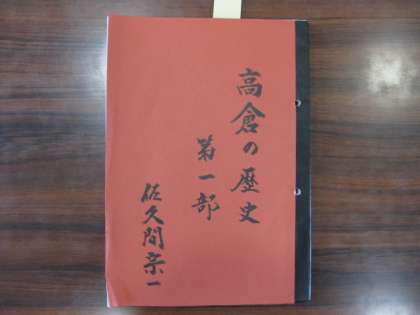 高倉の歴史
第一部
佐久間宗一